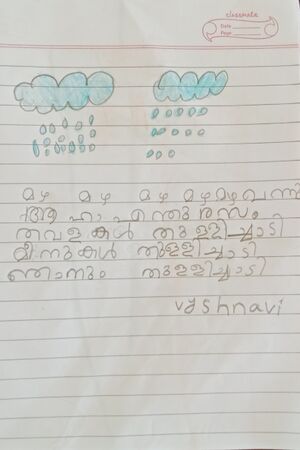 classmate
Date
Page
മഴ മഴ മഴ മഴമഴവന്നു
ആ ഹാ എന്തുരസം
തവളകൾ തുള്ളിച്ചാടി
മീനുകൾ തുള്ളിച്ചാടി
ഞാനും തുള്ളിച്ചാടി
vyshnavi